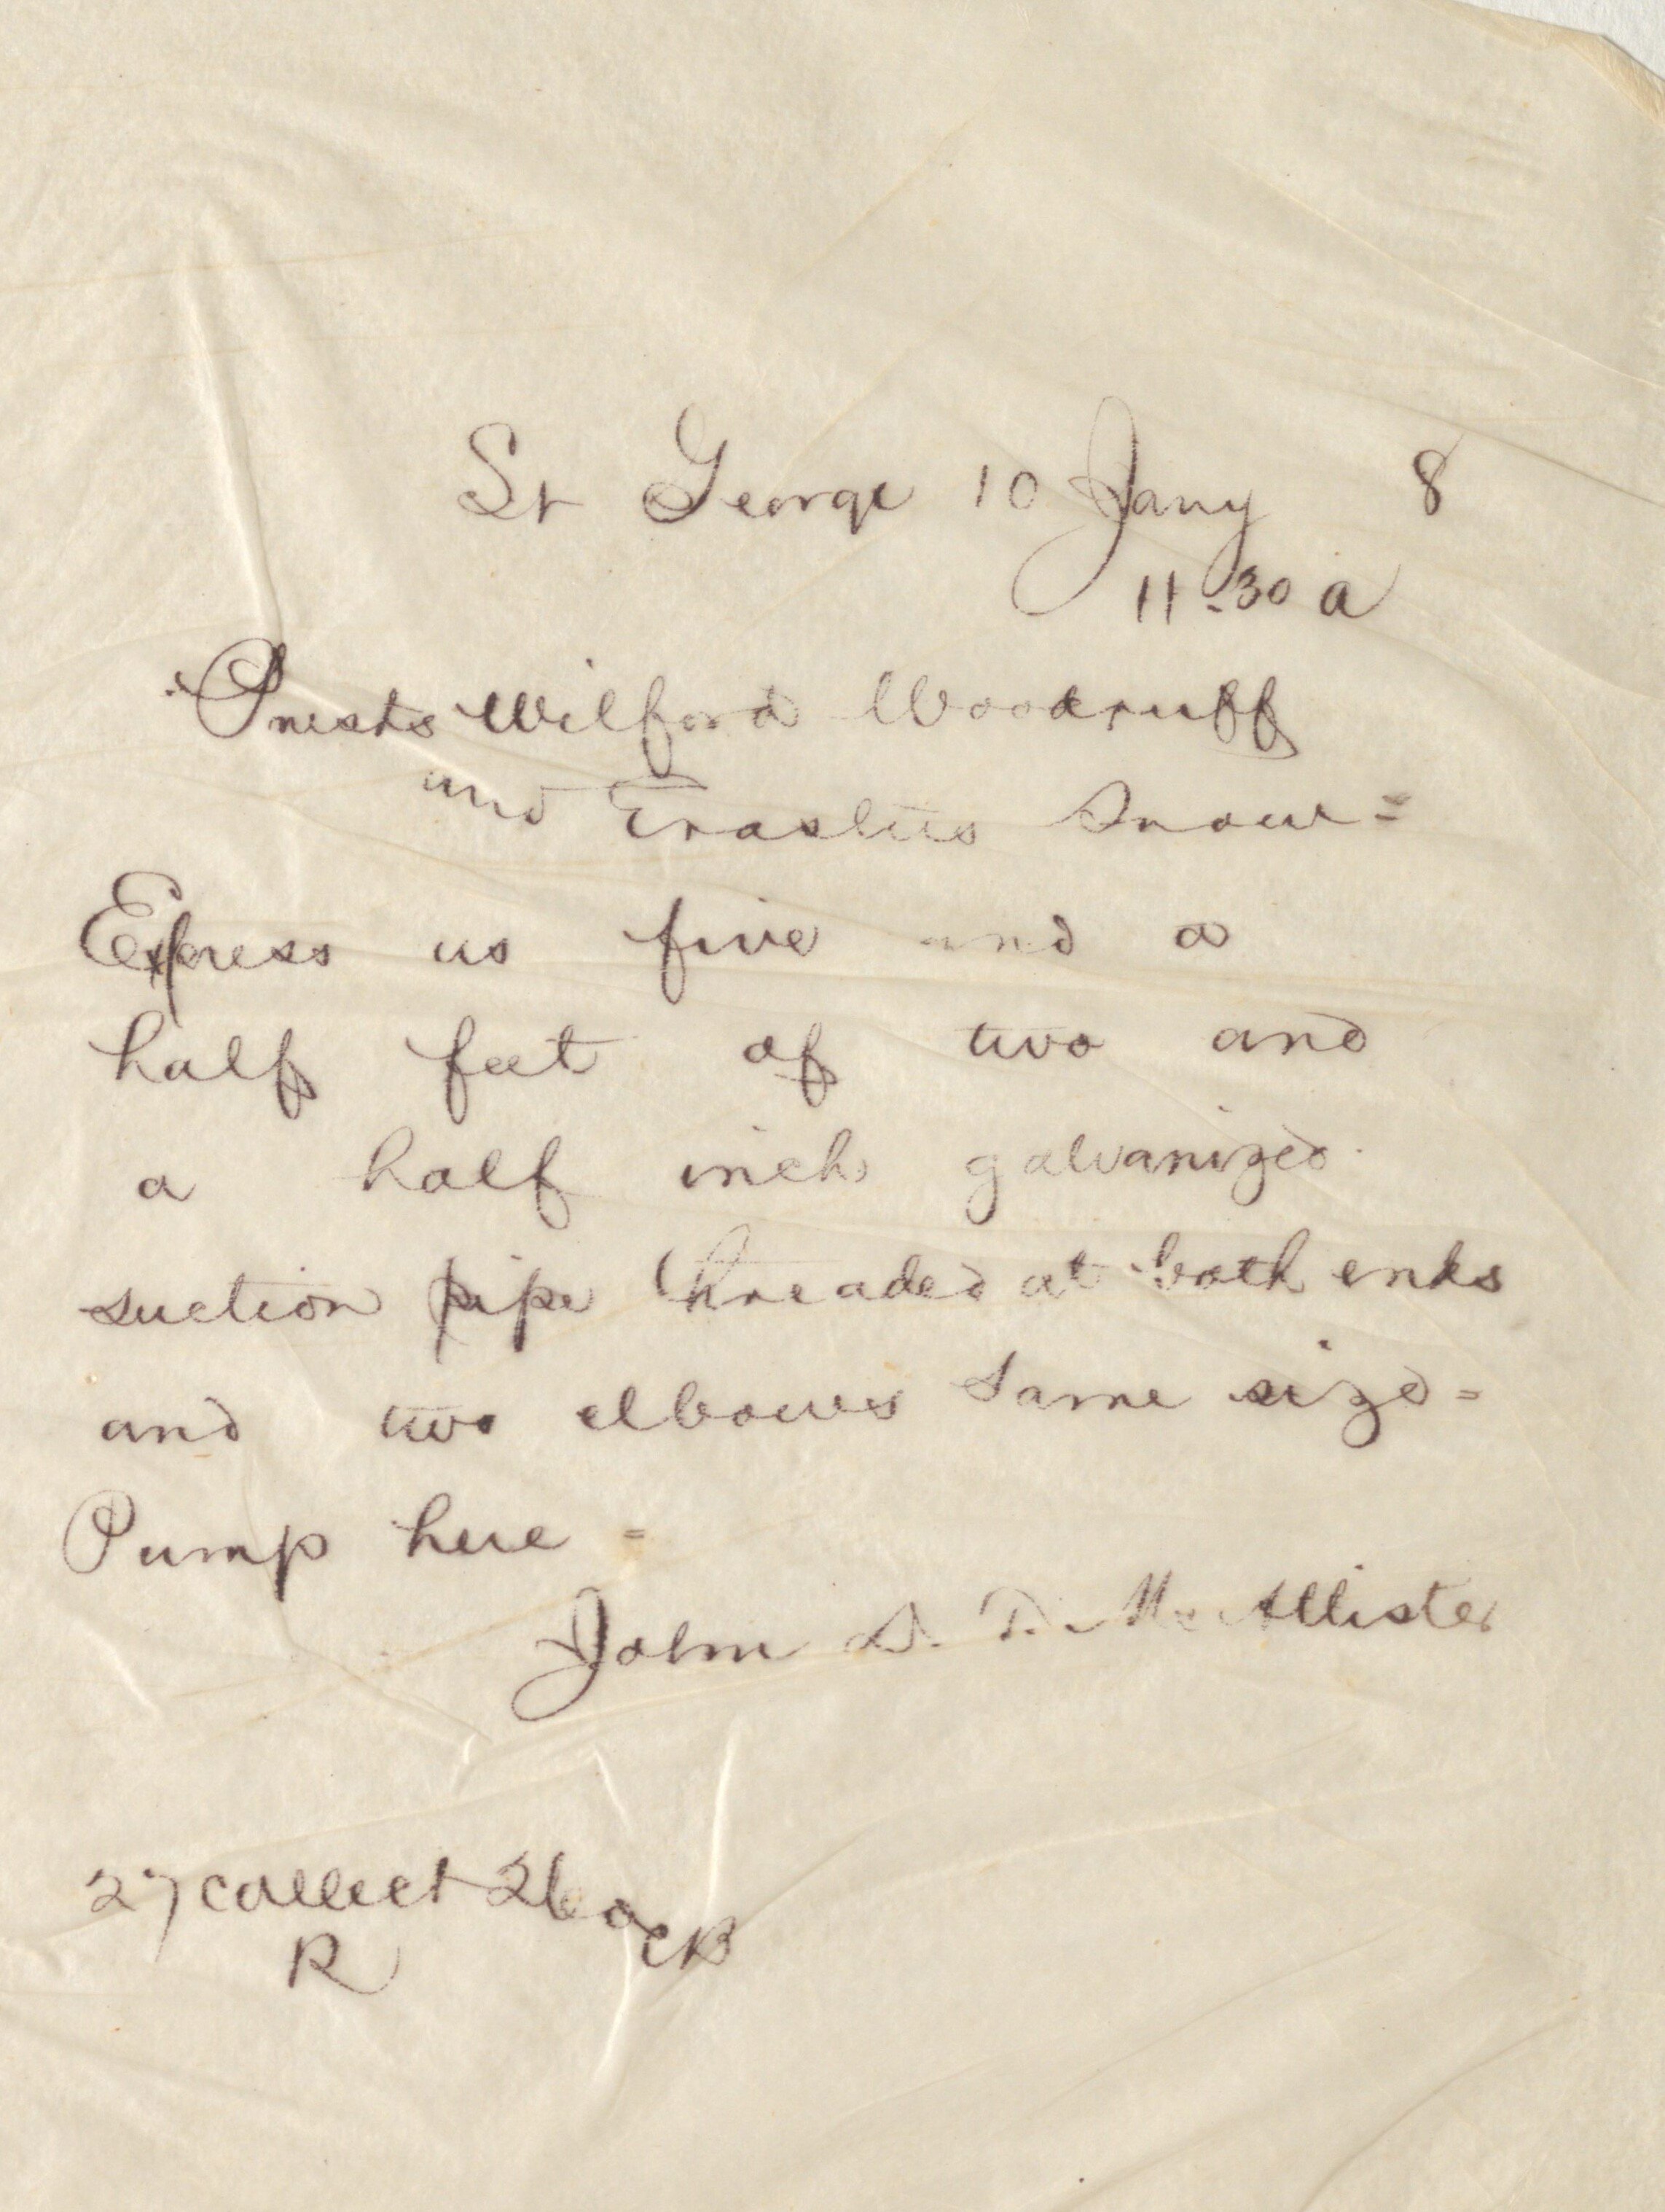 St George 10 Jany 8
11-30 a
Presdts Wilford Woodruff
and Erastus Snow =
Express us five and a
half feet of two and
a half inch galvanized
suction pipe threaded at both ends
and two elbows same size =
Pump here =
John D. T. McAllister
27 collect
R